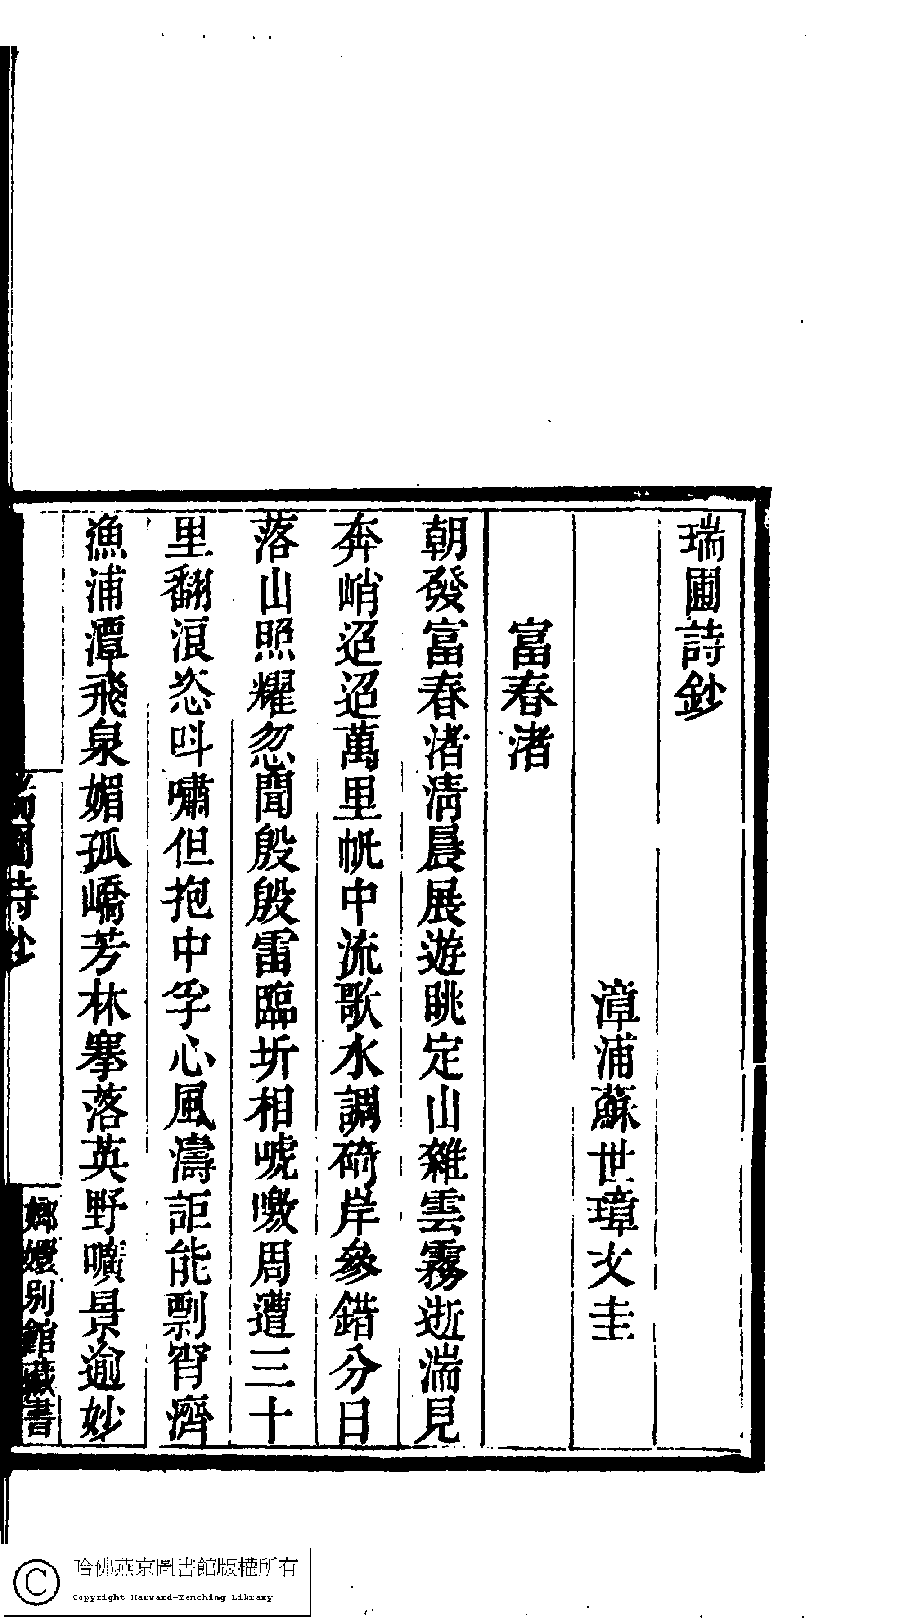 瑞圃詩鈔
漳浦蘇世璋文圭
富春渚
朝發富春渚淸晨展遊眺定山雜雲霧逝湍見
奔峭迢迢萬里帆中流歌水調碕岸參錯分日
落山照耀忽聞殷殷雷臨圻相唬噭周遭三十
里翻浪恣呌嘯但抱中孚心風濤詎能剽宵濟
漁浦潭飛泉媚孤嶠芳林搴落英野曠景逾妙
瑞圃詩鈔
嫏嬛別館藏書
哈佛燕京圖書館版權所有
Copyright Harvard-Yenching Library